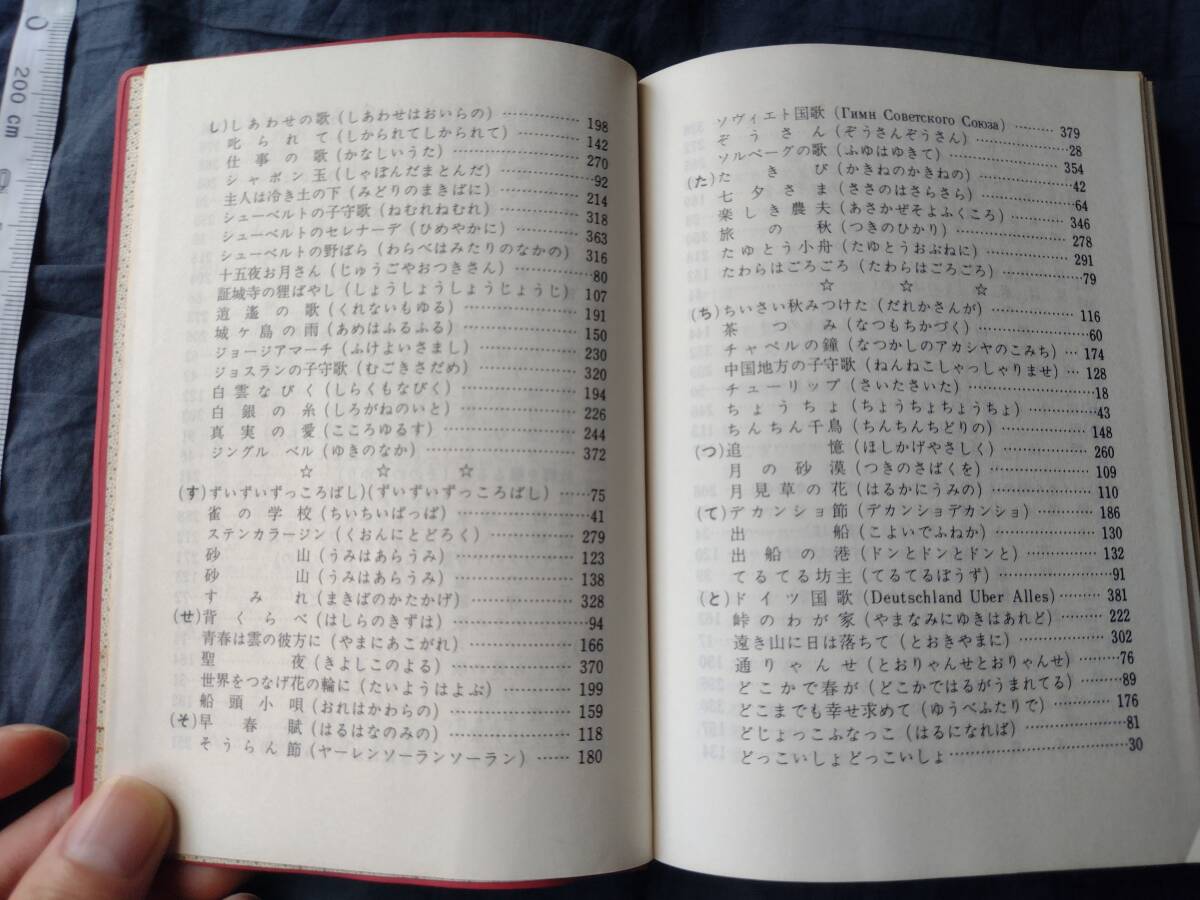 200 cm
し)しあわせの歌(しあわせはおいらの)……………198
叱られて(しかられてしかられて)……………142
仕事の歌(かなしいうた)……………270
シャボン玉(しゃぼんだまとんだ)……………92
主人は冷き土の下(みどりのまきばに)……………214
シューベルトの子守歌(ねむれねむれ)……………318
シューベルトのセレナーデ(ひめやかに)……………363
シューベルトの野ばら(わらべはみたりのなかの)316
十五夜お月さん(じゅうごやおつきさん)……………80
証城寺の狸ばやし(しょうしょうしょうじょうじ)107
逍遙の歌(くれないもゆる)……………191
城ヶ島の雨(あめはふるふる)……………150
ジョージアマーチ(ふけよいさまし)……………230
ジョスランの子守歌(むごきさだめ)……………320
白雲なびく(しらくもなびく)……………194
白銀の糸(しろがねのいと)……………226
真実の愛(こころゆるす)……………244
ジングルベル(ゆきのなか)……………372
☆ ☆ ☆
(す)ずいずいずっころばし)(ずいずいずっころばし)……75
雀の学校(ちいちいぱっぱ)……………41
ステンカラージン(くおんにとどろく)……………279
砂山(うみはあらうみ)……………123
砂山(うみはあらうみ)……………138
すみれ(まきばのかたかげ)……………328
(せ)背くらべ(はしらのきずは)……………94
青春は雲の彼方に(やまにあこがれ)……………166
聖夜(きよしこのよる)……………370
世界をつなげ花の輪に(たいようはよぶ)……………199
船頭小唄(おれはかわらの)……………159
(そ)早春賦(はるはなのみの)……………118
そうらん節(ヤーレンソーランソーラン)……180
ソヴィエト国歌(Гимн Советского Союза)……………379
ぞうさん(ぞうさんぞうさん)……………28
ソルベーグの歌(ふゆはゆきて)……………354
(た)たきび(かきねのかきねの)……………42
七夕さま(ささのはさらさら)……………64
楽しき農夫(あさかぜそよふくころ)……………346
旅の秋(つきのひかり)……………278
たゆとう小舟(たゆとうおぶねに)……………291
たわらはごろごろ(たわらはごろごろ)……………79
☆ ☆ ☆
(ち)ちいさい秋みつけた(だれかさんが)……………116
茶つみ(なつもちかづく)……………60
チャペルの鐘(なつかしのアカシヤのこみち)…174
中国地方の子守歌(ねんねこしゃっしゃりませ)…128
チューリップ(さいたさいた)……………18
ちょうちょ(ちょうちょちょうちょ)……………43
ちんちん千鳥(ちんちんちどりの)……………148
(つ)追憶(ほしかげやさしく)……………260
月の砂漠(つきのさばくを)……………109
月見草の花(はるかにうみの)……………110
(て)デカンショ節(デカンショデカンショ)……………186
出船(こよいでふねか)……………130
出船の港(ドンとドンとドンと)……………132
てるてる坊主(てるてるぼうず)……………91
(と)ドイツ国歌(Deutschland Uber Alles)……………381
峠のわが家(やまなみにゆきはあれど)……………222
遠き山に日は落ちて(とおきやまに)……………302
通りゃんせ(とおりゃんせとおりゃんせ)……………76
どこかで春が(どこかではるがうまれてる)……………89
どこまでも幸せ求めて(ゆうべふたりで)……………176
どじょっこふなっこ(はるになれば)……………81
どっこいしょどっこいしょ……………30